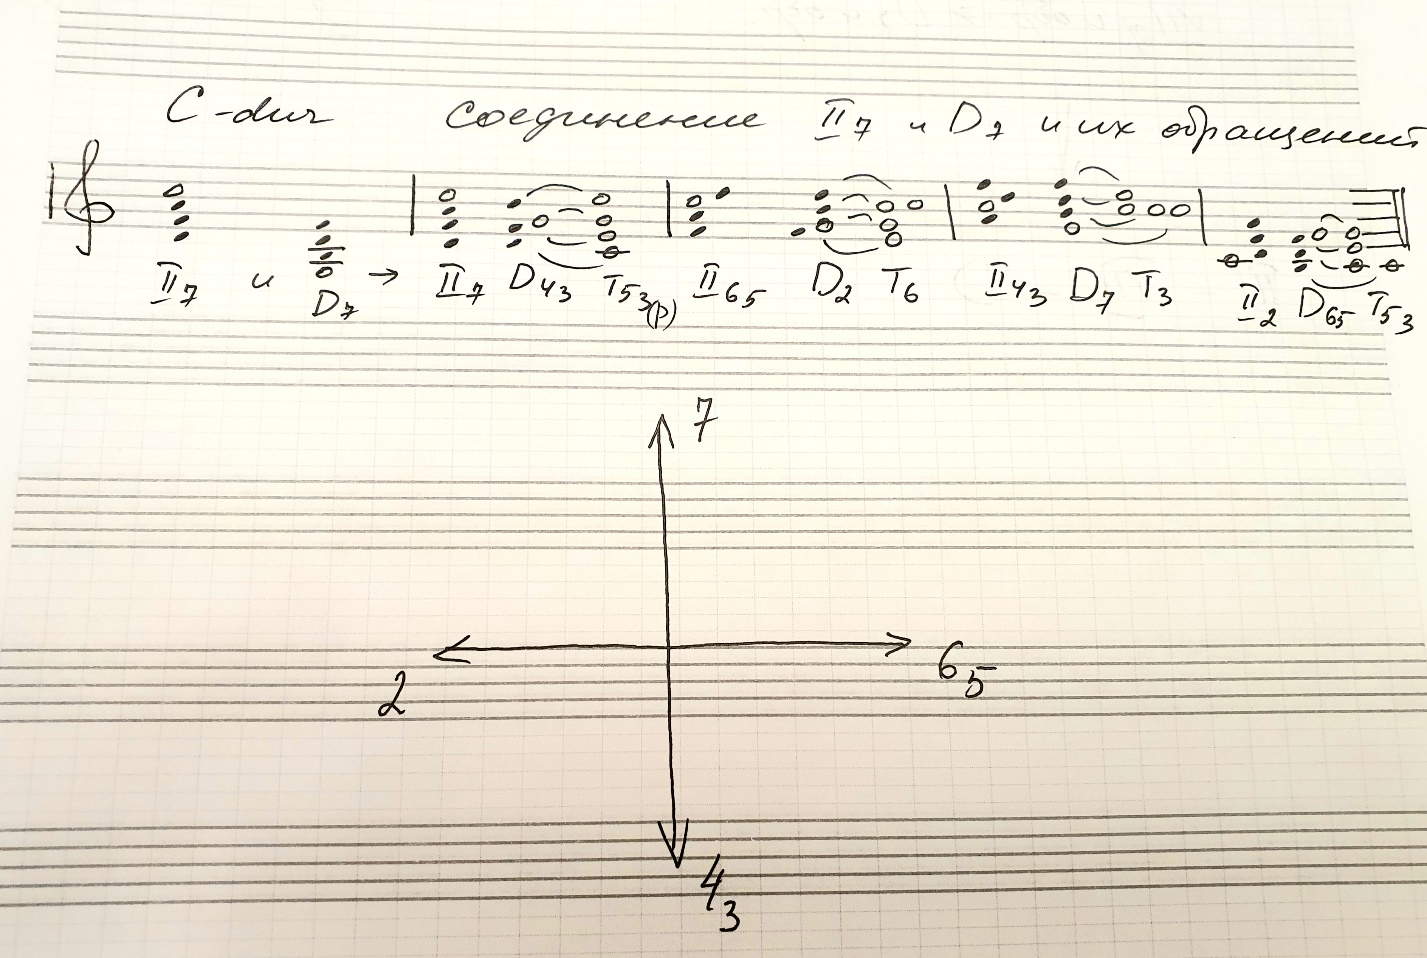 C-dur Соединение II7 и D7 и их обращений
II7 и D7 → II7 D43 T53(р) II65 D2 T6 II43 D7 T3 II2 D65 T53
7
2 65
43